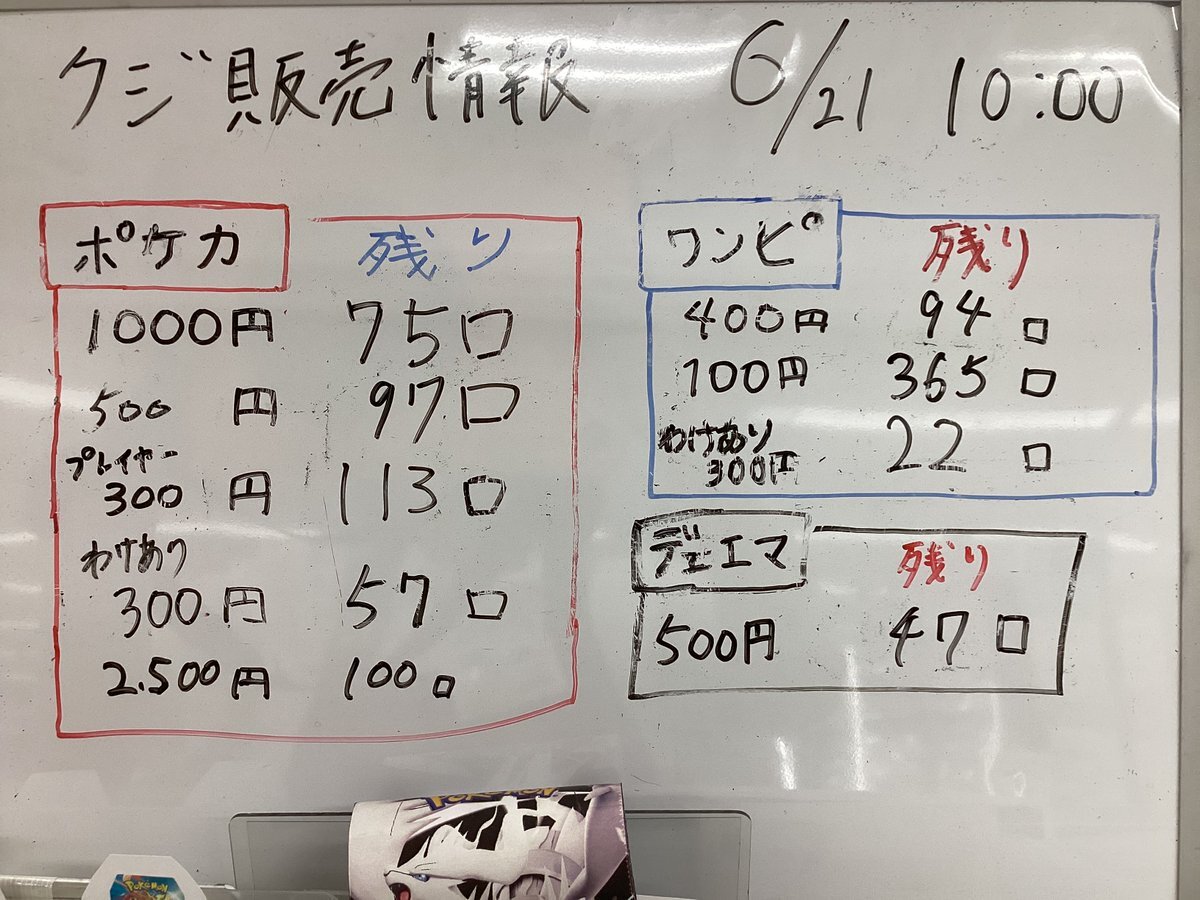 クジ販売情報 6/21 10:00
ポケカ 残り
1000円 75口
500円 97口
プレイヤー
300円 113口
わけあり
300円 57口
2.500円 100口
ワンピ 残り
400円 94口
100円 365口
わけあり
300円 22口
デュエマ 残り
500円 47口
POKEMON
POKEMON